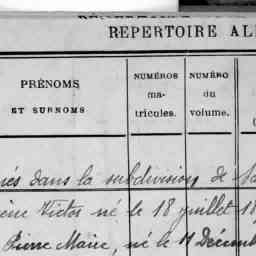 REPERTOIRE AL
PRÉNOMS
ET SURNOMS
NUMÉROS
ma-
tricules.
NUMÉRO
du
volume.
dans la subdivision de
Victor né le 18 juillet 18
Pierre Marie, né le 11 Décem